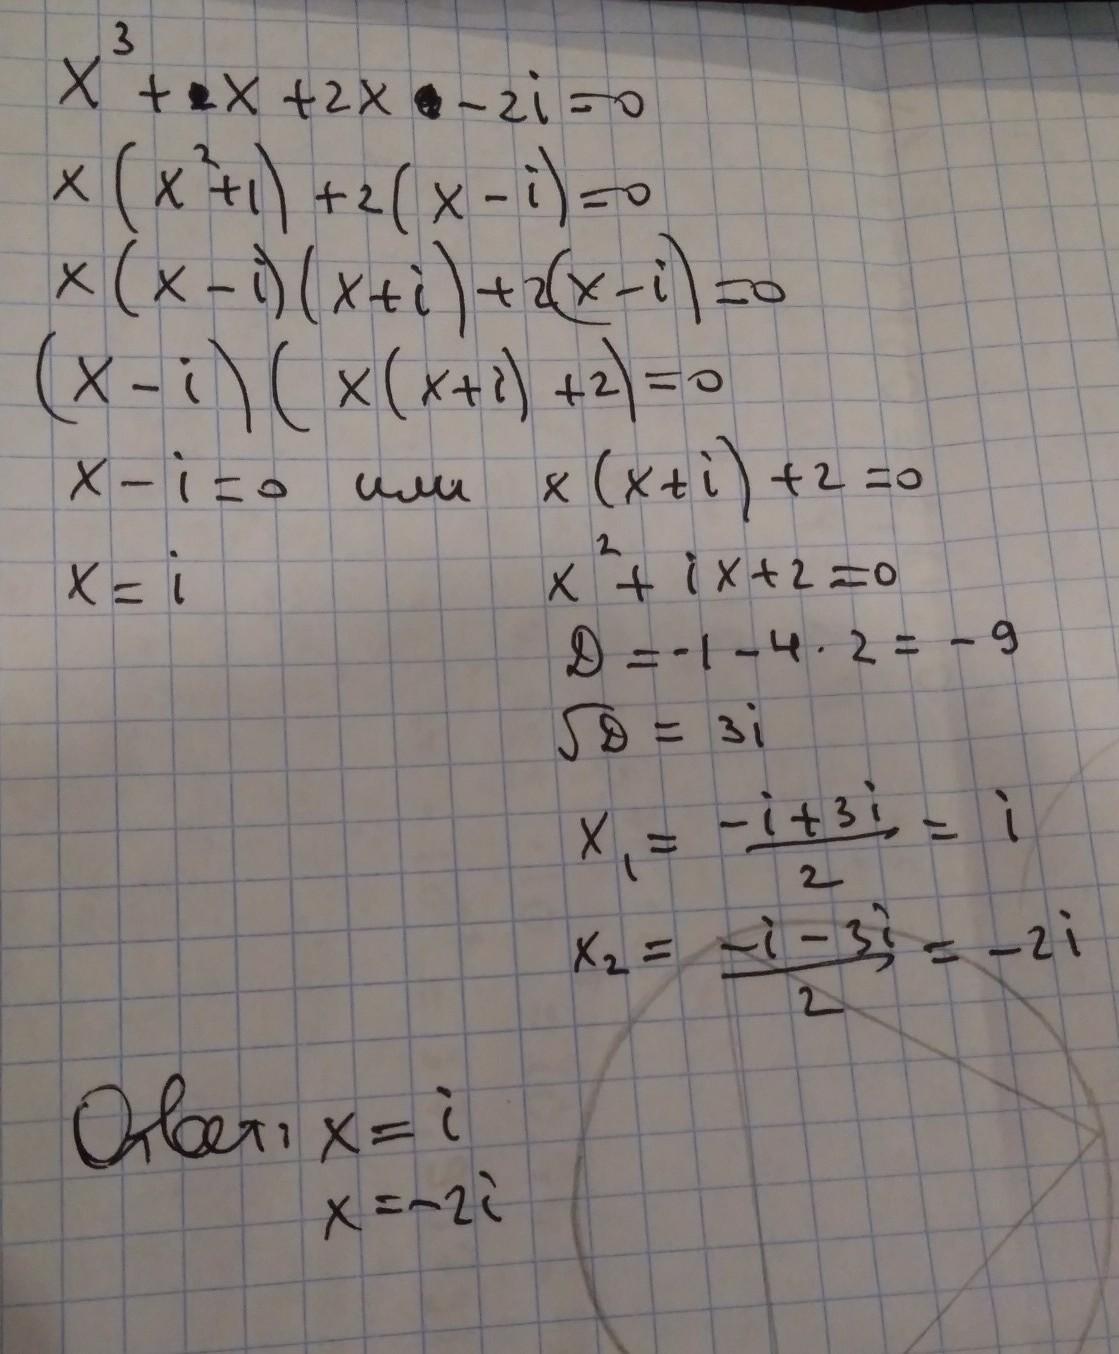 x³ + x + 2x - 2i = 0
x(x²+1) + 2(x - i) = 0
x(x - i)(x + i) + 2(x - i) = 0
(x - i)(x(x + i) + 2) = 0
x - i = 0 или x(x + i) + 2 = 0
x = i x² + ix + 2 = 0
D = -1 - 4 · 2 = -9
√D = 3i
x₁ = (-i + 3i)/2 = i
x₂ = (-i - 3i)/2 = -2i
Ответ: x = i
x = -2i